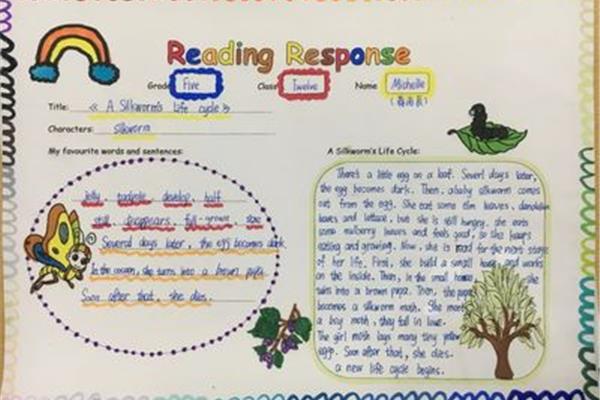 Reading Response
Grade Five Class Twelve Name Michelle
Title: 《 A Silkworm's life cycle 》
Characters: silkworm
My favourite words and sentences:
A Silkworm's Life Cycle:
Jelly, tadpole, develop, half
still, disappears, full-grown, size
① Several days later, the egg becomes dark.
In the cocoon, she turns into a brown pupa.
Soon after that, she dies.
There's a little egg on a leaf. Severl days later,
the egg becomes dark. Then, a baby silkworm comes
out from the egg. She eat some elm leaves, dandelion
leaves and lettuce, but she is still hungry. she eats
some mulberry leaves and feels good, so she keeps
eating and growing. Now, she is read for the next stage
of her life. First, she build a small house, and works
on the inside. Then, in the small house she
turns into a brown pupa. Then, the pupa
becomes a silkworm moth. She meets
a boy moth, they fall in love.
The girl moth lays many tiny yellow
eggs. Soon after that, she dies.
a new life cycle begins.